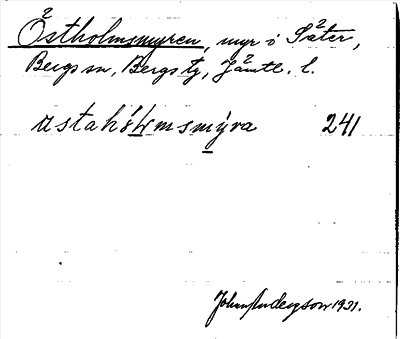 Östholmsmyren, myr i Säter,
Bergs sn, Bergs tg, Jämtl. l.
ɷstahó̵l̵msmýra 241
John Anderson 1931.